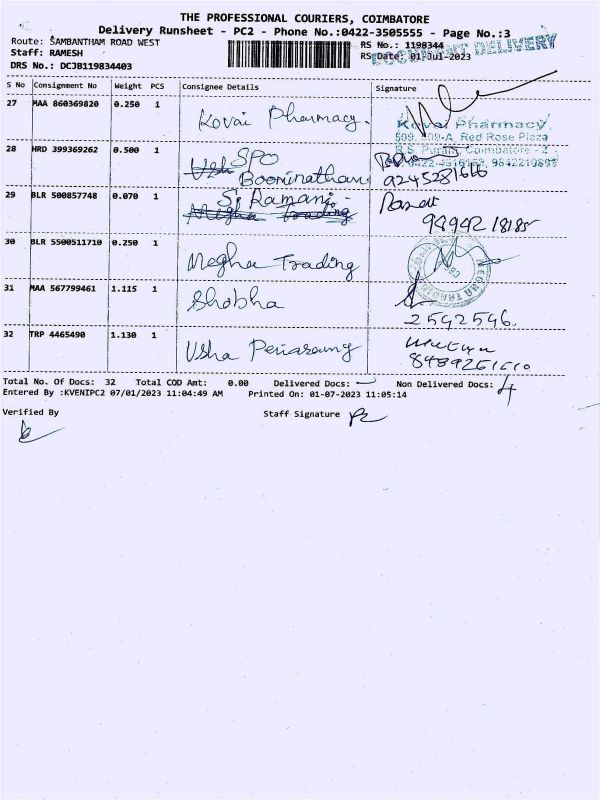 THE PROFESSIONAL COURIERS, COIMBATORE
Delivery Runsheet - PC2 - Phone No.:0422-3505555 - Page No.:3
Route: SAMBANTHAM ROAD WEST
RS No.: 1198344
DOCUMENT DELIVERY
Staff: RAMESH
RS Date: 01-Jul-2023
DRS No.: DCJB119834403
S No Consignment No Weight PCS Consignee Details Signature
27 MAA 860369820 0.250 1 Kovai Pharmacy.
Kovai Pharmacy
Red Rose Plaza
Coimbatore - 2
9842210897
28 HRD 399369262 0.500 1 SPO
Boominathan
9245281666
29 BLR 500857748 0.070 1 S. Ramani -
Megha Trading
9894218185
30 BLR 5500511710 0.250 1 Megha Trading
31 MAA 567799461 1.115 1 Shobha
2592596.
32 TRP 4465490 1.130 1 Usha
8489261610
Total No. Of Docs: 32 Total COD Amt: 0.00 Delivered Docs: Non Delivered Docs: 4
Entered By :KVENIPC2 07/01/2023 11:04:49 AM Printed On: 01-07-2023 11:05:14
Verified By Staff Signature